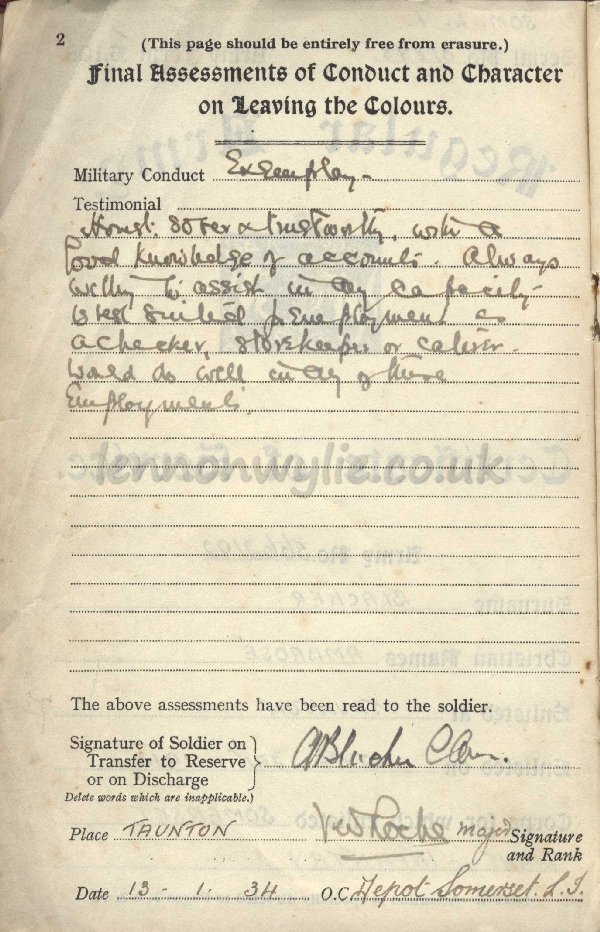 2
(This page should be entirely free from erasure.)
Final Assessments of Conduct and Character
on Leaving the Colours.
Military Conduct Exemplary.
Testimonial
Honest, sober & trustworthy, with a
good knowledge of accounts. Always
willing to assist in any capacity.
Is best suited for employment as
a checker, storekeeper or caterer.
Would do well in any of these
employments.
lennonwylie.co.uk
The above assessments have been read to the soldier.
Signature of Soldier on
Transfer to Reserve
or on Discharge
(Delete words which are inapplicable.)
Place TAUNTON
Major Signature
and Rank
Date 13 - 1. 34 O.C. Depot Somerset. L.I.